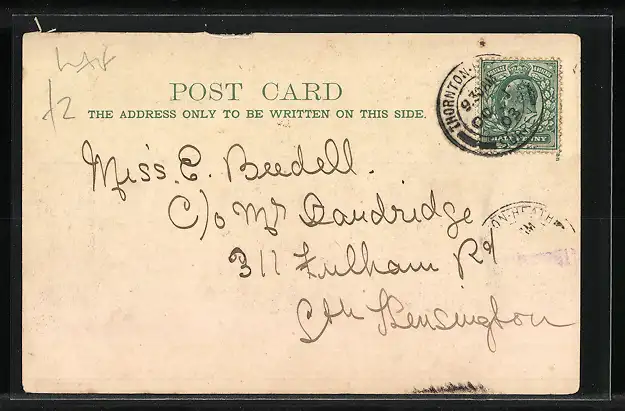 POST CARD
THE ADDRESS ONLY TO BE WRITTEN ON THIS SIDE.
THORNTON-
9 30
03
HALFPENNY
Miss. E. Beedell.
C/o Mr Dandridge
ON-HEATH
311 Fulham Rd
Sth Kensington